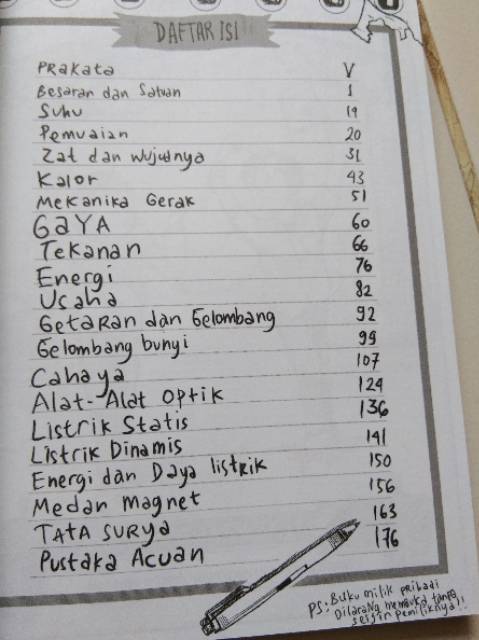 DAFTAR ISI
Prakata V
Besaran dan Satuan 1
Suhu 19
Pemuaian 20
Zat dan wujudnya 31
Kalor 43
Mekanika Gerak 51
GAYA 60
Tekanan 66
Energi 76
Usaha 82
Getaran dan Gelombang 92
Gelombang bunyi 99
Cahaya 107
Alat-Alat Optik 124
Listrik Statis 136
Listrik Dinamis 141
Energi dan Daya listrik 150
Medan Magnet 156
TATA SURYA 163
Pustaka Acuan 176
PS: Buku milik pribadi
Dilarang membuka tanpa
seijin pemiliknya!!